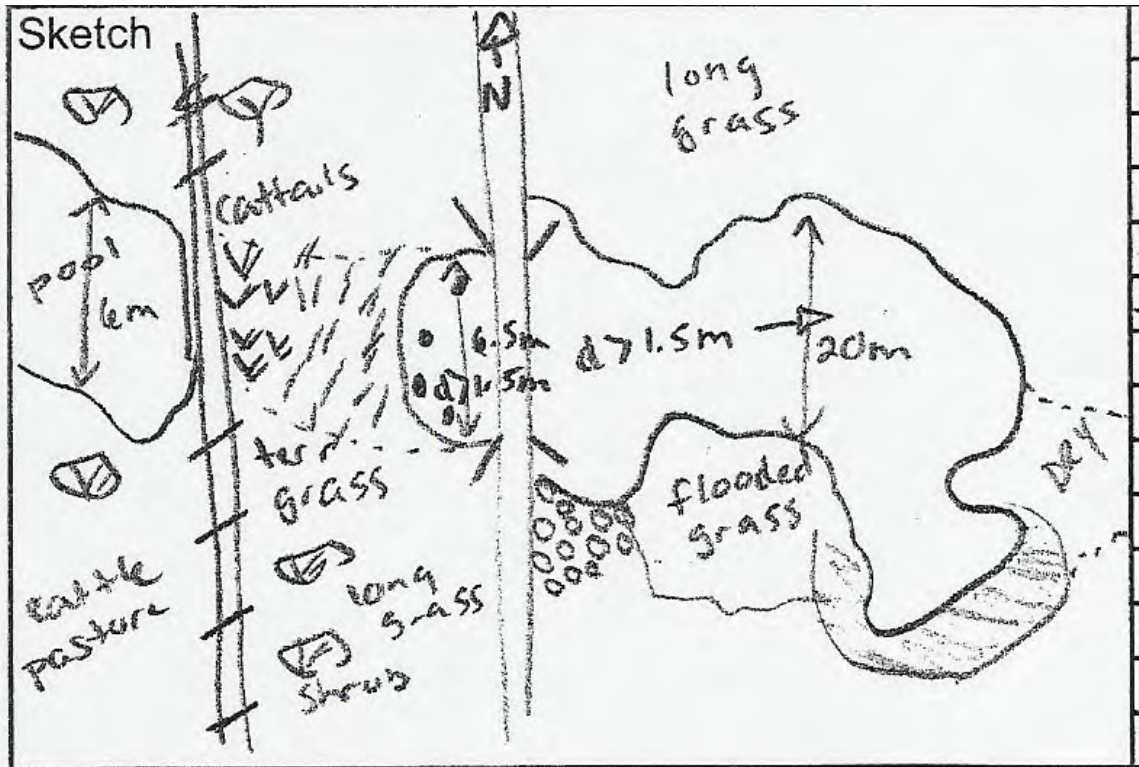 Sketch
N
long
grass
Cattails
pool
6m
6.5m
d>1.5m
d>1.5m
20m
terr
grass
flooded
grass
Dry
cattle
pasture
long
grass
shrub